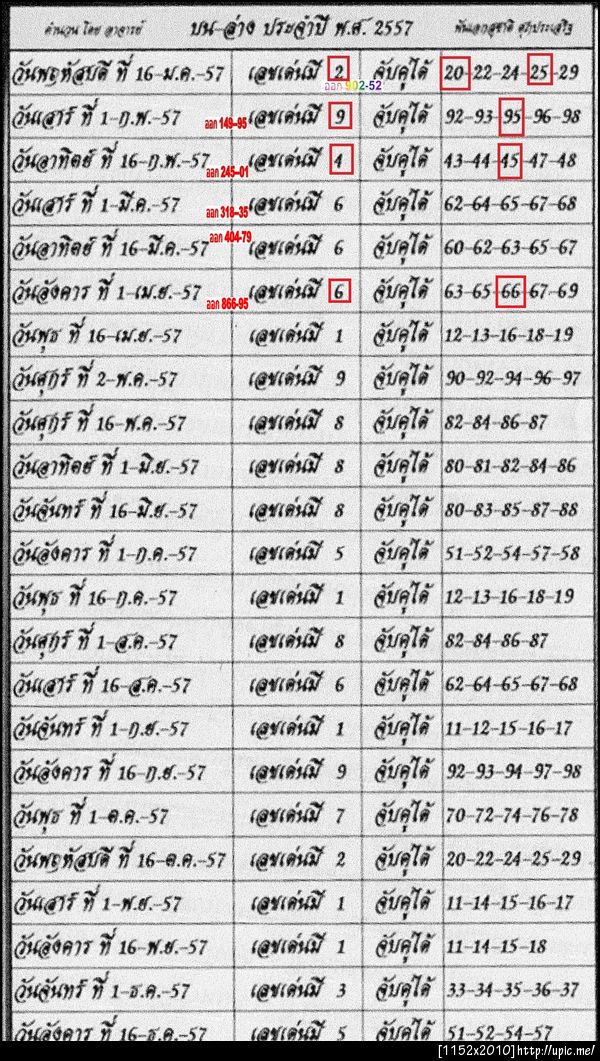 คำนวน โดย อาจารย์ บน-ล่าง ประจำปี พ.ศ. 2557 พันเอกสุชาติ ศุภประเสริฐ
วันพฤหัสบดี ที่ 16-ม.ค.-57 เลขเด่นมี 2 จับคู่ได้ 20-22-24-25-29
ออก 902-52
วันเสาร์ ที่ 1-ก.พ.-57 เลขเด่นมี 9 จับคู่ได้ 92-93-95-96-98
ออก 149-95
วันอาทิตย์ ที่ 16-ก.พ.-57 เลขเด่นมี 4 จับคู่ได้ 43-44-45-47-48
ออก 245-01
วันเสาร์ ที่ 1-มี.ค.-57 เลขเด่นมี 6 จับคู่ได้ 62-64-65-67-68
ออก 316-35
วันอาทิตย์ ที่ 16-มี.ค.-57 เลขเด่นมี 6 จับคู่ได้ 60-62-63-65-67
ออก 404-79
วันอังคาร ที่ 1-เม.ย.-57 เลขเด่นมี 6 จับคู่ได้ 63-65-66-67-69
ออก 866-95
วันพุธ ที่ 16-เม.ย.-57 เลขเด่นมี 1 จับคู่ได้ 12-13-16-18-19
วันศุกร์ ที่ 2-พ.ค.-57 เลขเด่นมี 9 จับคู่ได้ 90-92-94-96-97
วันศุกร์ ที่ 16-พ.ค.-57 เลขเด่นมี 8 จับคู่ได้ 82-84-86-87
วันอาทิตย์ ที่ 1-มิ.ย.-57 เลขเด่นมี 8 จับคู่ได้ 80-81-82-84-86
วันจันทร์ ที่ 16-มิ.ย.-57 เลขเด่นมี 8 จับคู่ได้ 80-83-85-87-88
วันอังคาร ที่ 1-ก.ค.-57 เลขเด่นมี 5 จับคู่ได้ 51-52-54-57-58
วันพุธ ที่ 16-ก.ค.-57 เลขเด่นมี 1 จับคู่ได้ 12-13-16-18-19
วันศุกร์ ที่ 1-ส.ค.-57 เลขเด่นมี 8 จับคู่ได้ 82-84-86-87
วันเสาร์ ที่ 16-ส.ค.-57 เลขเด่นมี 6 จับคู่ได้ 62-64-65-67-68
วันจันทร์ ที่ 1-ก.ย.-57 เลขเด่นมี 1 จับคู่ได้ 11-12-15-16-17
วันอังคาร ที่ 16-ก.ย.-57 เลขเด่นมี 9 จับคู่ได้ 92-93-94-97-98
วันพุธ ที่ 1-ต.ค.-57 เลขเด่นมี 7 จับคู่ได้ 70-72-74-76-78
วันพฤหัสบดี ที่ 16-ต.ค.-57 เลขเด่นมี 2 จับคู่ได้ 20-22-24-25-29
วันเสาร์ ที่ 1-พ.ย.-57 เลขเด่นมี 1 จับคู่ได้ 11-14-15-16-17
วันอังคาร ที่ 16-พ.ย.-57 เลขเด่นมี 1 จับคู่ได้ 11-14-15-18
วันจันทร์ ที่ 1-ธ.ค.-57 เลขเด่นมี 3 จับคู่ได้ 33-34-35-36-37
วันอังคาร ที่ 16-ธ.ค.-57 เลขเด่นมี 5 จับคู่ได้ 51-52-54-57
[1152x2010]http://upic.me/